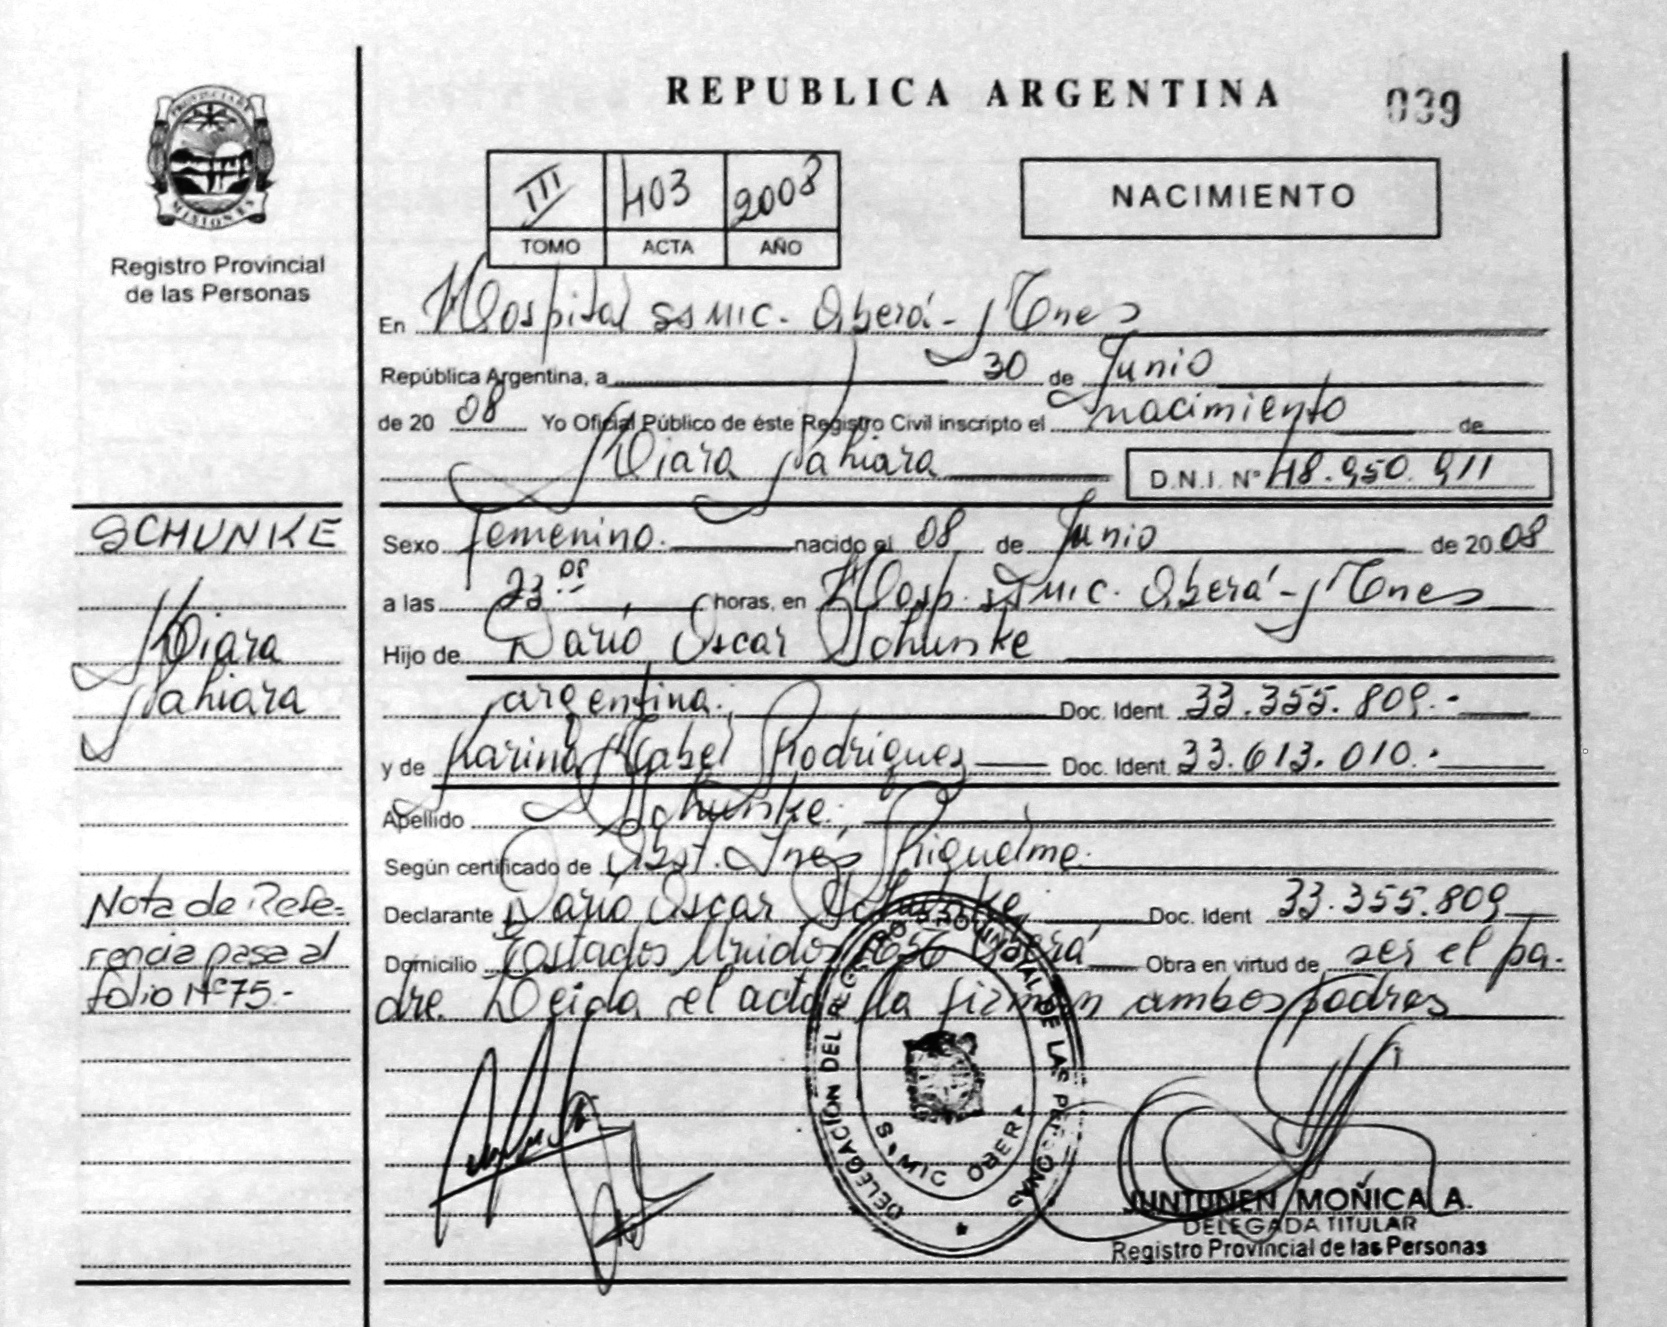 REPUBLICA ARGENTINA
039
PROVINCIA DE
MISIONES
Registro Provincial
de las Personas
III 403 2008
TOMO ACTA AÑO
NACIMIENTO
En Hospital SSMIC. Oberá - Mnes
República Argentina, a 30 de Junio
de 20 08 Yo Oficial Público de éste Registro Civil inscripto el nacimiento de
Kiara Yahiara D.N.I. Nº 48.950.911
SCHUNKE
Kiara
Yahiara
Sexo femenino. nacido el 08 de Junio de 20 08
a las 23 horas, en Hosp. SSMIC. Oberá - Mnes
Hijo de Darío Oscar Schunke
argentina. Doc. Ident. 33.355.809.-
y de Karina Mabel Rodriguez Doc. Ident. 33.613.010.-
Apellido Schunke.
Según certificado de Obst. Inés Riquelme.
Declarante Darío Oscar Schunke Doc. Ident 33.355.809
Domicilio Estados Unidos Oberá Obra en virtud de ser el pa-
dre. Leida el acta la firman ambos padres
Nota de Refe-
rencia pasa al
folio Nº 75.-
DELEGACIÓN DEL REGISTRO PROVINCIAL DE LAS PERSONAS
SSMIC OBERA
JUNTUNEN MOÑICA A.
DELEGADA TITULAR
Registro Provincial de las Personas